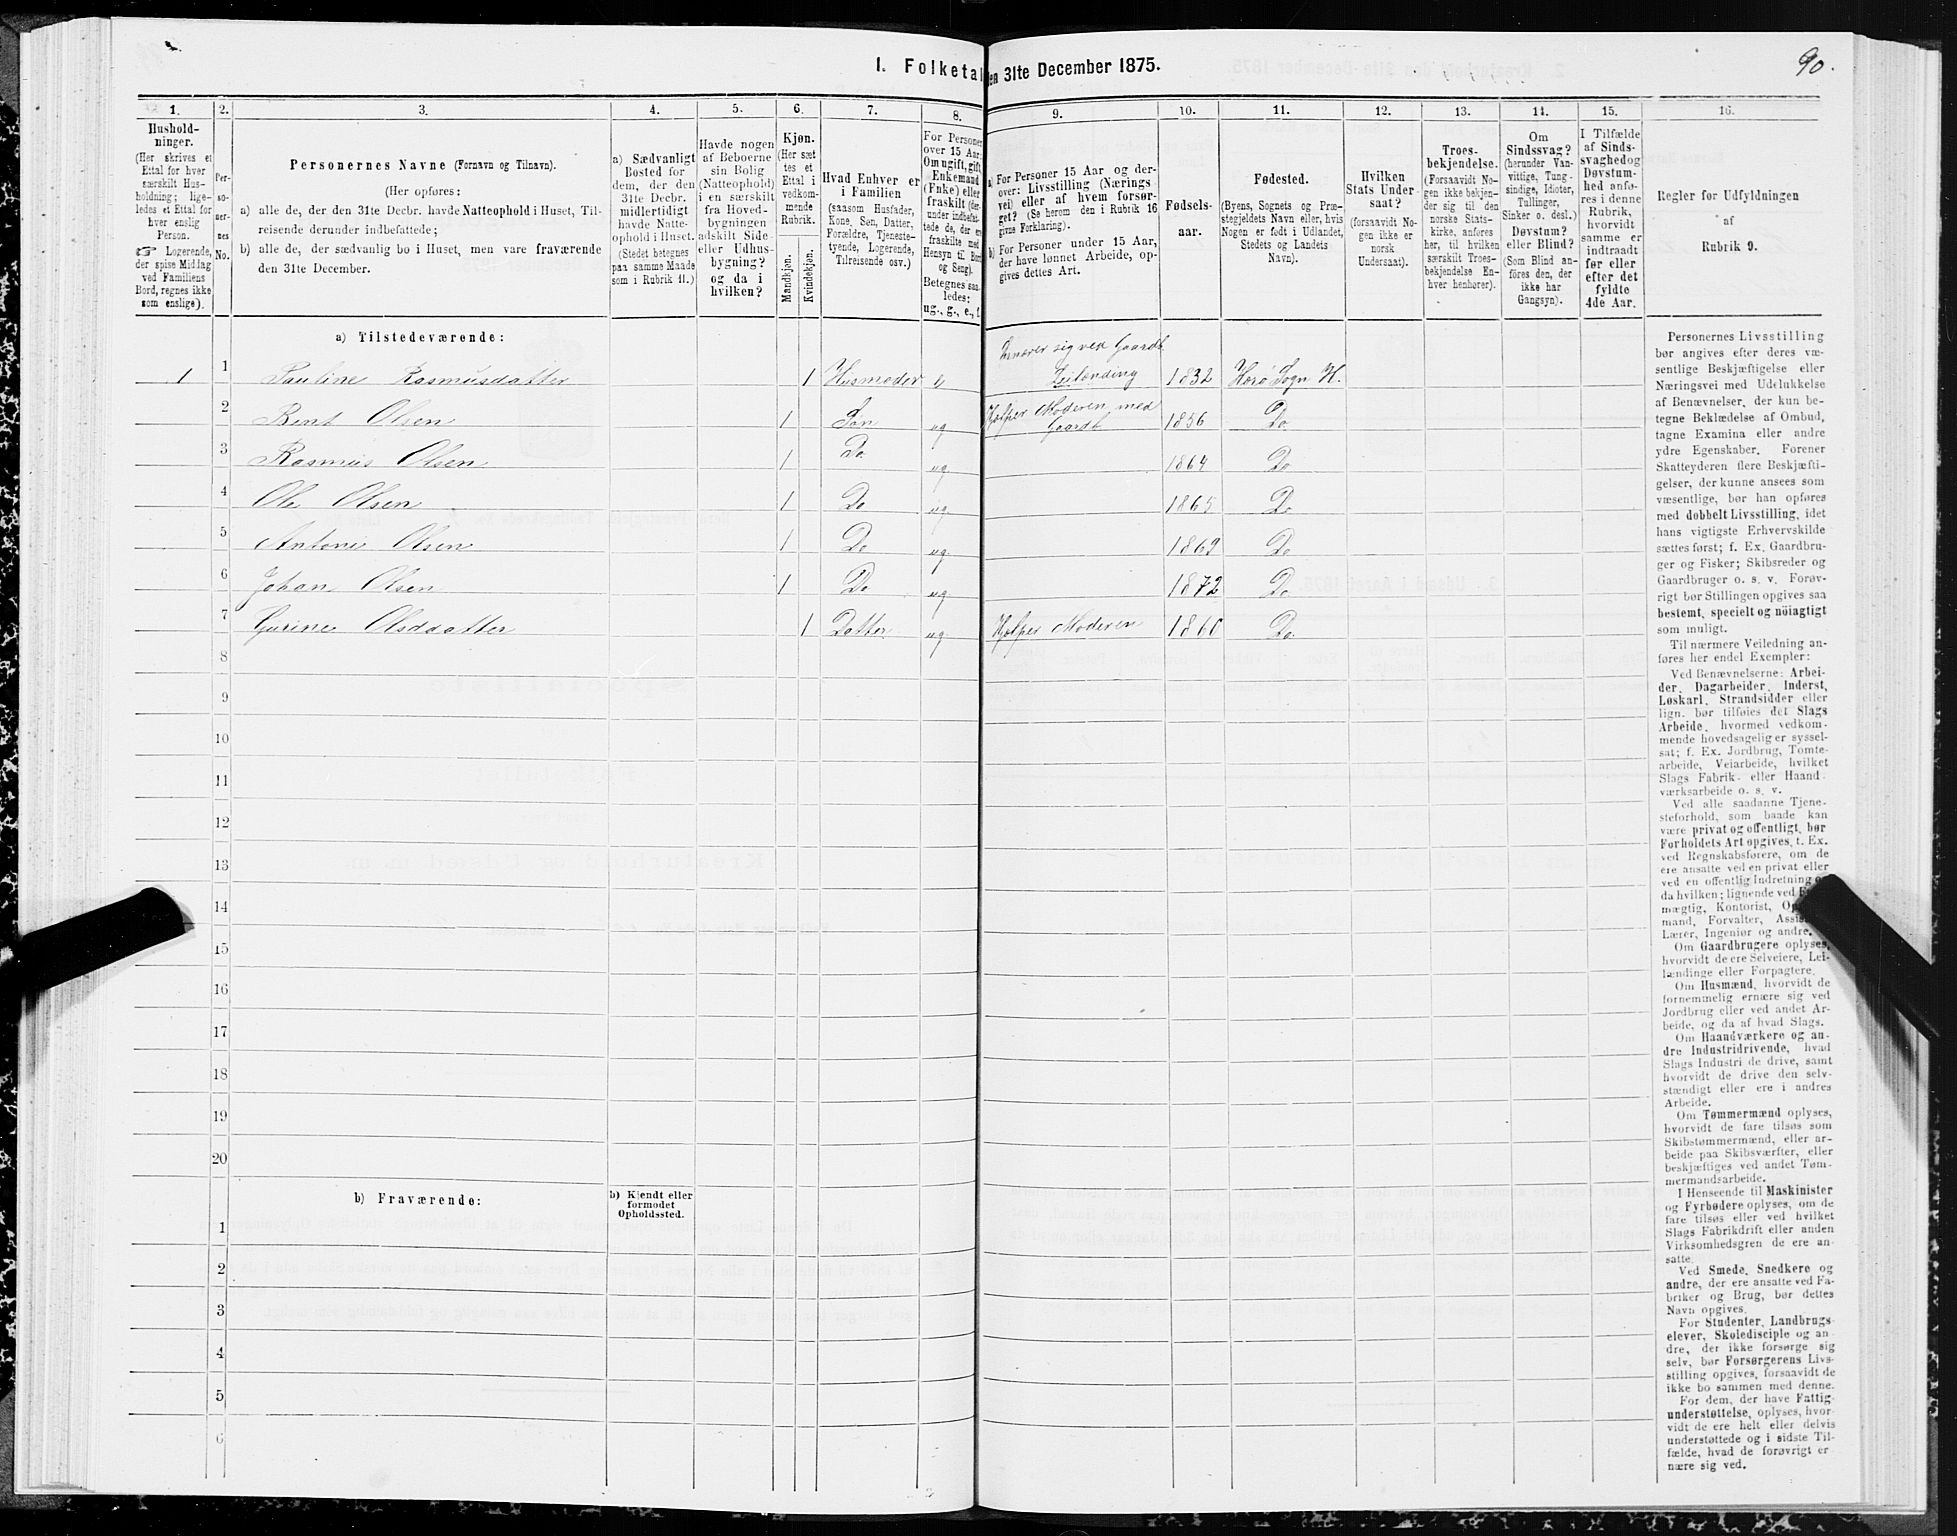 90.
1. Folketal
en 31te December 1875.
1.
2.
3.
4.
5.
6.
7.
8.
9.
10.
11.
12.
13.
14.
15.
16.
Hushold-
ninger.
(Her skrives et
Ettal for hver
særskilt Hus-
holdning; lige-
ledes et Ettal for
hver enslig
Person.
☞ Logerende,
der spise Middag
ved Familiens
Bord, regnes ikke
som enslige).
Per-
so-
ner-
nes
No.
Personernes Navne (Fornavn og Tilnavn).
(Her opføres:
a) alle de, der den 31te Decbr. havde Natteophold i Huset, Til-
reisende derunder indbefattede;
b) alle de, der sædvanlig bo i Huset, men vare fraværende
den 31te December.
a) Sædvanligt
Bosted for
dem, der den
31te Decbr.
midlertidigt
havde Natte-
ophold i Huset.
(Stedet betegnes
paa samme Maade
som i Rubrik 11.)
Havde nogen
af Beboerne
sin Bolig
(Natteophold)
i en særskilt
fra Hoved-
bygningen
adskilt Side-
eller Udhus-
bygning?
og da i
hvilken?
Kjøn.
(Her sæt
tes et
Ettal i
vedkom-
mende
Rubrik.
Mandkjøn.
Kvindekjøn.
Hvad Enhver er
i Familien
(saasom Husfader,
Kone, Søn, Datter,
Forældre, Tjeneste-
tyende, Logerende,
Tilreisende osv.)
For Personer
over 15 Aar:
Om ugift, gift,
Enkemand
(Enke) eller
fraskilt (der-
under indbefat-
tede de, der ere
fraskilte med
Hensyn til Bord
og Seng).
Betegnes saa-
ledes:
ug., g., e., f.
a) For Personer 15 Aar og der-
over: Livsstilling (Nærings-
vei) eller af hvem forsør-
get? (Se herom den i Rubrik 16
givne Forklaring).
b) For Personer under 15 Aar,
der have lønnet Arbeide, op-
gives dettes Art.
Fødsels-
aar.
Fødested.
(Byens, Sognets og Præ-
stegjeldets Navn eller, hvis
Nogen er født i Udlandet,
Stedets og Landets
Navn).
Hvilken
Stats Under-
saat?
(forsaavidt No-
gen ikke er
norsk
Undersaat).
Troes-
bekjendelse.
(Forsaavidt No-
gen ikke bekjen-
der sig til den
norske Stats-
kirke, anføres
her, til hvilken
særskilt Troes-
bekjendelse En-
hver henhører).
Om
Sindssvag?
(herunder Van-
vittige, Tung-
sindige, Idioter,
Sinker o. desl.)
Døvstum?
eller Blind?
(Som Blind an-
føres den, der
ikke har
Gangsyn).
I Tilfælde
af Sinds-
svaghed og
Døvstum-
hed anfø-
res i denne
Rubrik,
hvorvidt
samme er
indtraadt
før eller
efter det
fyldte
4de Aar.
Regler før Udfyldningen
af
Rubrik 9.
a) Tilstedeværende:
Ernærer sig ved Gaardb.
1 1 Pauline Rasmusdatter 1 Husmoder e Leilænding 1832 Herø Sogn H.
2 Bent Olsen 1 Søn ug Hjælper Moderen med Gaardb 1856 Do
3 Rasmus Olsen 1 Do. ug 1864 Do
4 Ole Olsen 1 Do ug 1865 Do
5 Antone Olsen 1 Do ug 1869 Do
6 Johan Olsen 1 Do ug 1872 Do
7 Gurine Olsdatter 1 Datter ug Hjælper Moderen 1860 Do
8
9
10
11
12
13
14
15
16
17
18
19
20
b) Fraværende:
b) Kjendt eller
formodet
Opholdssted.
1
2
3
4
5
6
Personernes Livsstilling
bør angives efter deres væ-
sentlige Beskjæftigelse eller
Næringsvei med Udelukkelse
af Benævnelser, der kun be-
tegne Beklædelse af Ombud,
tagne Examina eller andre
ydre Egenskaber. Forener
Skatteyderen flere Beskjæfti-
gelser, der kunne ansees som
væsentlige, bør han opføres
med dobbelt Livsstilling, idet
hans vigtigste Erhvervskilde
sættes først; f. Ex. Gaardbru-
ger og Fisker; Skibsreder og
Gaardbruger o. s. v. Forøv-
rigt bør Stillingen opgives saa
bestemt, specielt og nöiagtigt
som muligt.
Til nærmere Veiledning an-
føres her endel Exempler:
Ved Benævnelserne: Arbei-
der, Dagarbeider, Inderst,
Løskarl, Strandsidder eller
lign. bør tilføies det Slags
Arbeide, hvormed vedkom-
mende hovedsagelig er syssel-
sat; f. Ex. Jordbrug, Tomte-
arbeide, Veiarbeide, hvilket
Slags Fabrik- eller Haand-
værksarbeide o. s. v.
Ved alle saadanne Tjene-
steforhold, som baade kan
være privat og offentligt, bør
Forholdets Art opgives, f. Ex.
ved Regnskabsførere, om de
ere ansatte ved en privat eller
ved en offentlig Indretning
da hvilken; lignende ved
mægtig, Kontorist,
mand, Forvalter,
Lærer, Ingeniør og andre.
Om Gaardbrugere oplyses,
hvorvidt de ere Selveiere, Lei-
lændinge eller Forpagtere.
Om Husmænd, hvorvidt de
fornemmelig ernære sig ved
Jordbrug eller ved andet Ar-
beide, og da af hvad Slags.
Om Haandværkere og an-
dre Industridrivende, hvad
Slags Industri de drive, samt
hvorvidt de drive den selv-
stændigt eller ere i andres
Arbeide.
Om Tømmermænd oplyses,
hvorvidt de fare tilsøs som
Skibstømmermænd, eller ar-
beide paa Skibsværfter, eller
beskjæftiges ved andet Tøm-
mermandsarbeide.
I Henseende til Maskinister
og Fyrbødere oplyses, om de
fare tilsøs eller ved hvilket
Slags Fabrikdrift eller anden
Virksomhedsgren de ere an-
satte.
Ved Smede, Snedkere og
andre, der ere ansatte ved Fa-
briker og Brug, bør dettes
Navn opgives.
For Studenter, Landbrugs-
elever, Skoledisciple og an-
dre, der ikke forsørge sig
selv, bør Forsørgerens Livs-
stilling opgives, forsaavidt de
ikke bo sammen med denne.
For dem, der have Fattig-
understøttelse, oplyses, hvor-
vidt de ere helt eller delvis
understøttede og i sidste Til-
fælde, hvad de forøvrigt er-
nære sig ved.